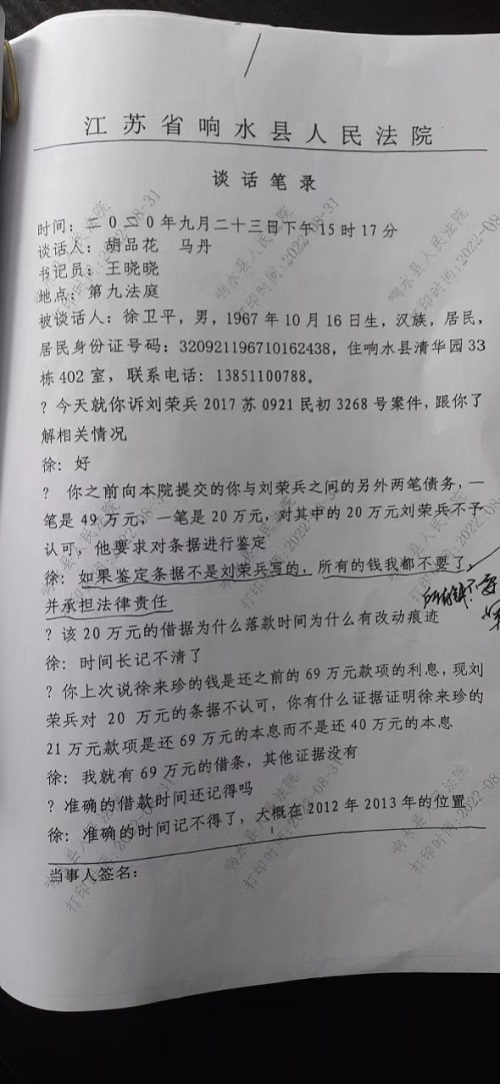 江苏省响水县人民法院
谈话笔录
时间：二0二0年九月二十三日下午15时17分
谈话人：胡品花 马丹
书记员：王晓晓
地点：第九法庭
被谈话人：徐卫平，男，1967年10月16日生，汉族，居民，
居民身份证号码：320921196710162438，住响水县清华园33
栋402室，联系电话：13851100788。
？今天就你诉刘荣兵2017苏0921民初3268号案件，跟你了
解相关情况
徐：好
？ 你之前向本院提交的你与刘荣兵之间的另外两笔债务，一
笔是49万元，一笔是20万元，对其中的20万元刘荣兵不予
认可，他要求对条据进行鉴定
徐：如果鉴定条据不是刘荣兵写的，所有的钱我都不要了，
并承担法律责任
？该20万元的借据为什么落款时间为什么有改动痕迹
徐：时间长记不清了
？你上次说徐来珍的钱是还之前的69万元款项的利息，现刘
荣兵对 20 万元的条据不认可，你有什么证据证明徐来珍的
21万元款项是还69万元的本息而不是还40万元的本息
徐：我就有69万元的借条，其他证据没有
？准确的借款时间还记得吗
徐：准确的时间记不得了，大概在2012年2013年的位置
当事人签名：
响水县人民法院
打印时间:2022-08-31